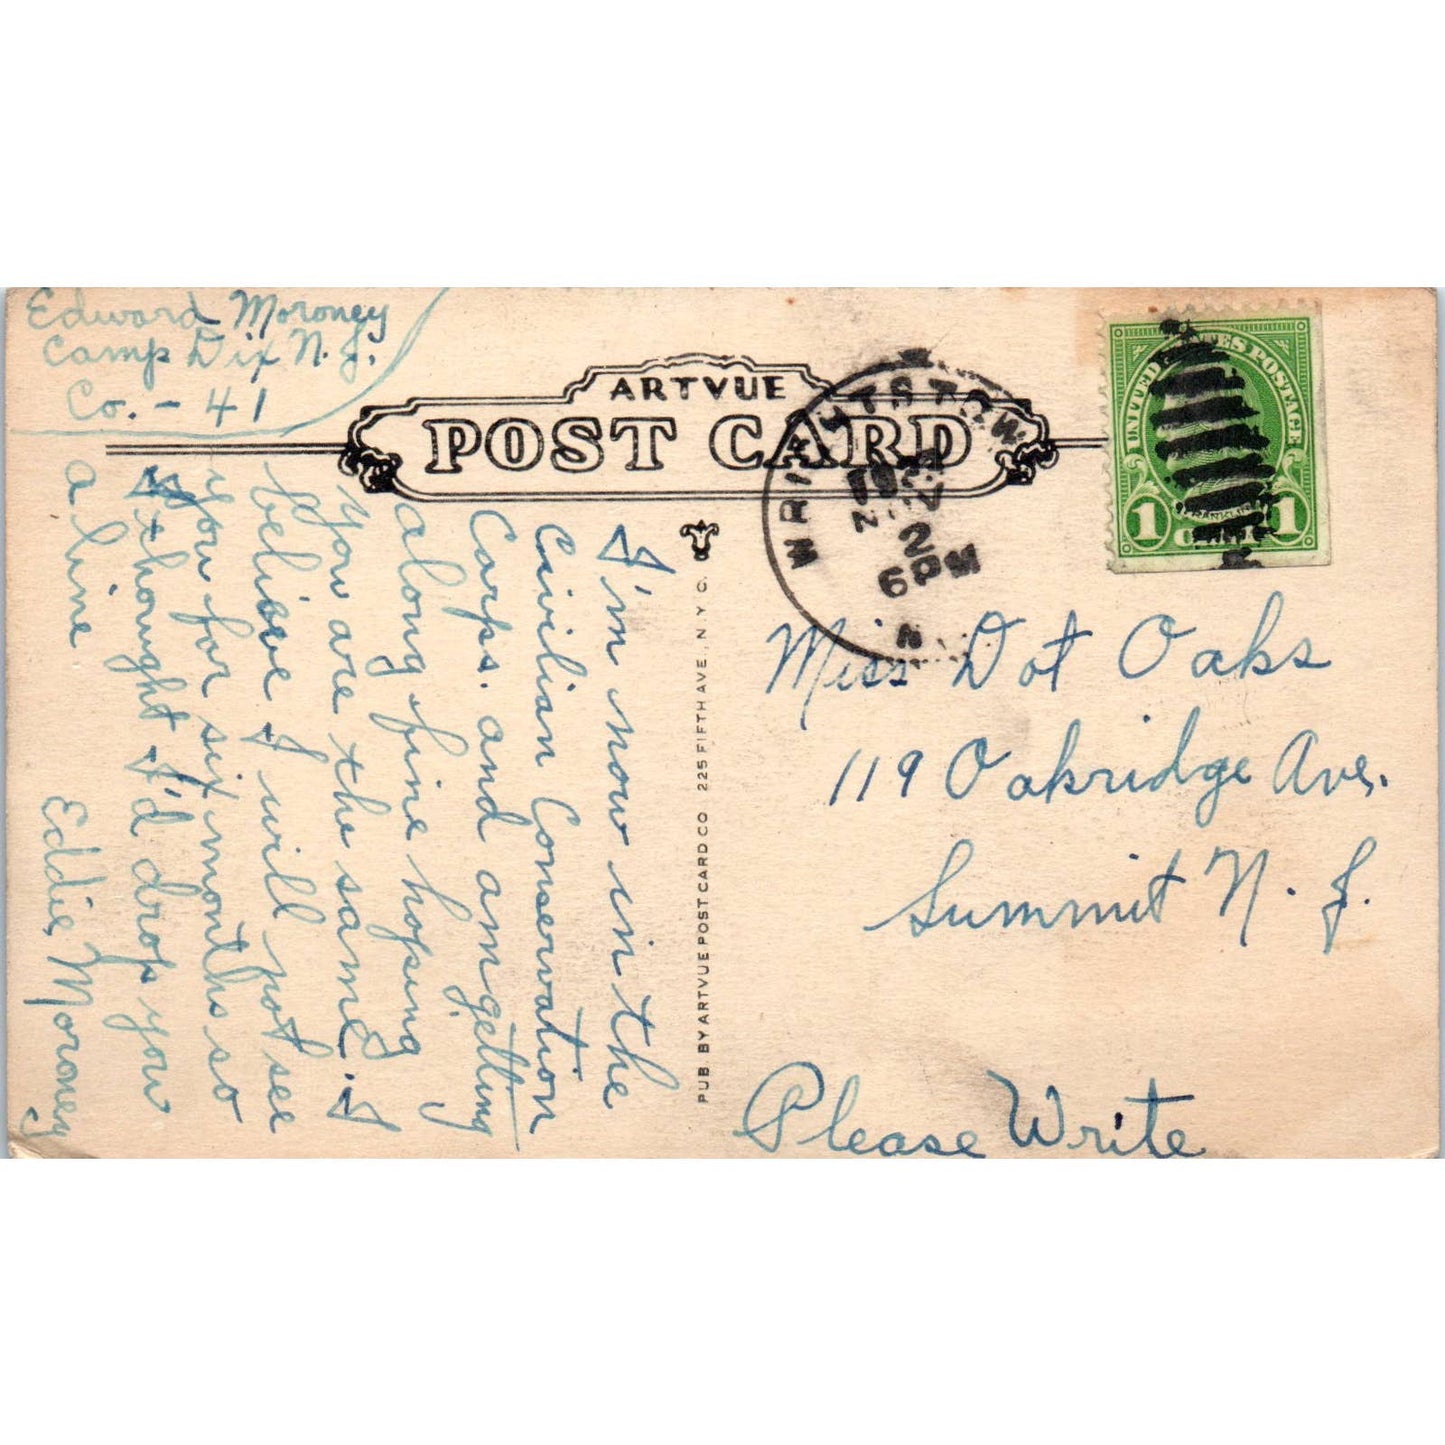 Edward Moroney
Camp Dix N.J.
Co. - 41
ARTVUE
POST CARD
I'm now in the
Civilian Conservation
Corps. and am getting
along fine hopsing
you are the same. I
belive I will not see
you for six months so
I thought I'd drop you
a line
Eddie Moroney
PUB. BY ARTVUE POST CARD CO. 225 FIFTH AVE., N.Y.C.
WRIGHTSTOWN
NOV
2
6PM
N
UNITED STATES POSTAGE
FRANKLIN
1 CENT 1
Miss Dot Oaks
119 Oakridge Ave.
Summit N.J.
Please Write